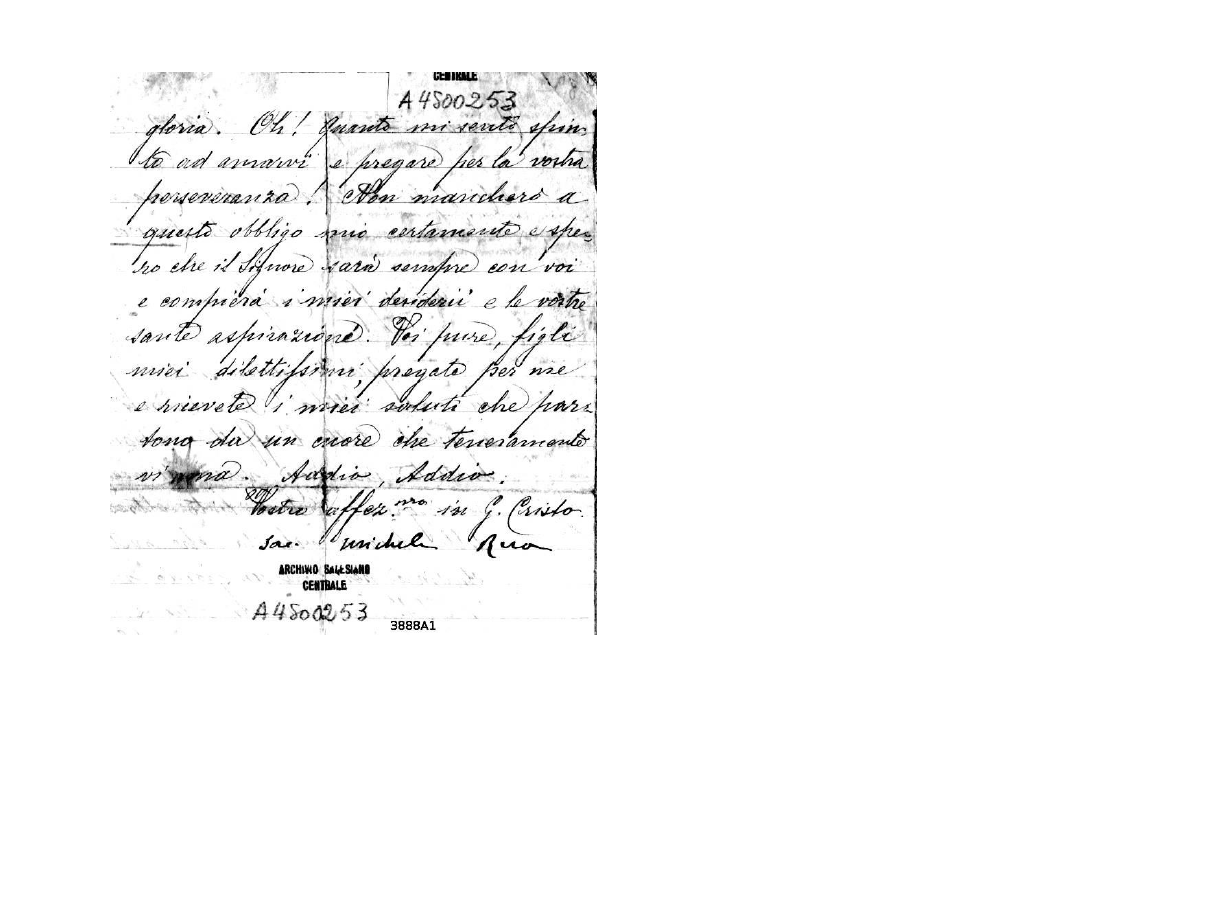 CENTRALE
A4500253
gloria. Oh! quanto mi sento spin-
to ad amarvi e pregare per la vostra
perseveranza! Non mancherò a
questo obbligo mio certamente e spe-
ro che il Signore sarà sempre con voi
e compierà i miei desiderii e le vostre
sante aspirazioni. Voi pure, figli
miei dilettissimi, pregate per me
e ricevete i miei saluti che par-
tono da un cuore che teneramente
vi ama. Addio, Addio.
Vostro affez.mo in G. Cristo.
Sac. Michele Rua
ARCHIVIO SALESIANO
CENTRALE
A4500253
3888A1